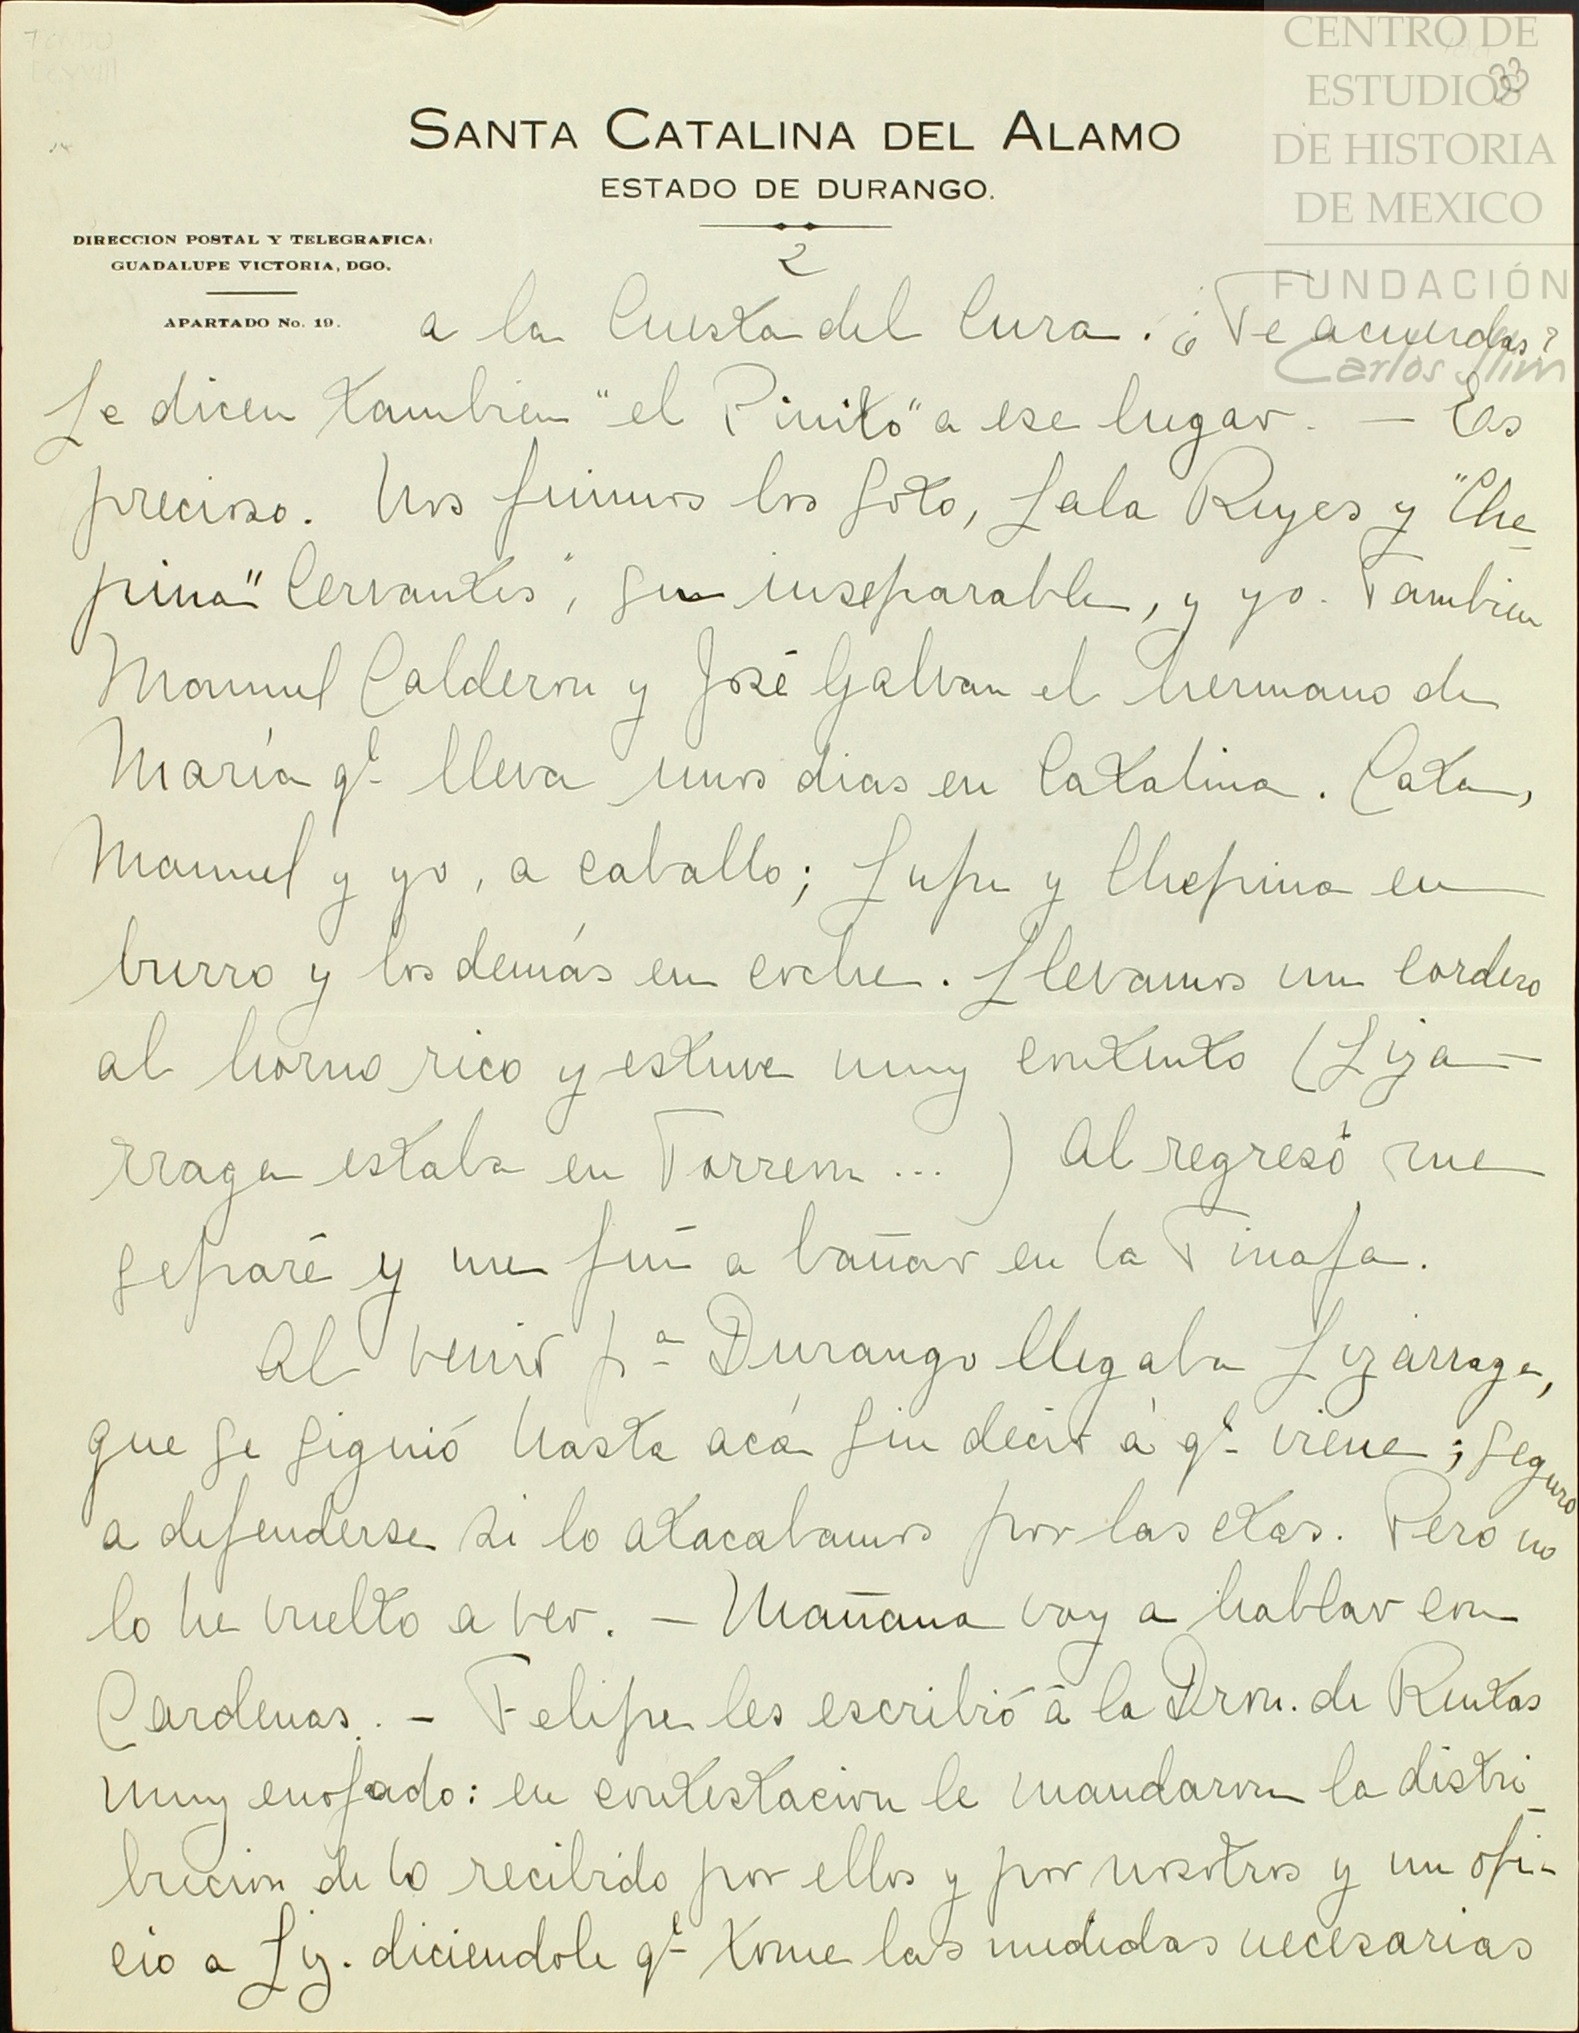 CENTRO DE
ESTUDIOS
DE HISTORIA
DE MEXICO
FUNDACIÓN
Carlos Slim
33
SANTA CATALINA DEL ALAMO
ESTADO DE DURANGO.
DIRECCION POSTAL Y TELEGRAFICA:
GUADALUPE VICTORIA, DGO.
APARTADO No. 19.
2
a la Cuesta del Cura. ¿Te acuerdas?
Le dicen tambien "el Pinito" a ese lugar. — Es
precioso. Nos fuimos los Soto, Lala Reyes y "Che-
pina" Cervantes", su inseparable, y yo. Tambien
Manuel Calderon y José Galvan el hermano de
María qe lleva unos dias en Catalina. Cata,
Manuel y yo, a caballo; Lupe y Chepina en
burro y los demás en coche. Llevamos un cordero
al horno rico y estuve muy contento (Liza-
rraga estaba en Torreon ...) Al regreso me
separé y me fuí a bañar en la Tinaja.
Al venir pa Durango llegaba Lizarraga,
que se siguió hasta acá sin decir á qe viene; seguro
a defenderse si lo atacabamos por las ctas. Pero no
lo he vuelto a ver. — Mañana voy a hablar con
Cardenas. — Felipe les escribió á la Dron. de Rentas
muy enojado: en contestacion le mandaron la distri-
bucion de lo recibido por ellos y por nosotros y un ofi-
cio a Liz. diciendole qe tome las medidas necesarias